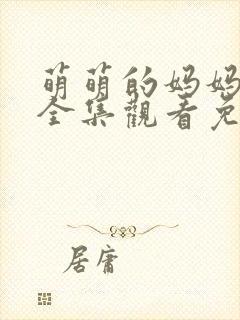 萌萌的妈妈
全集觀看免
居庸